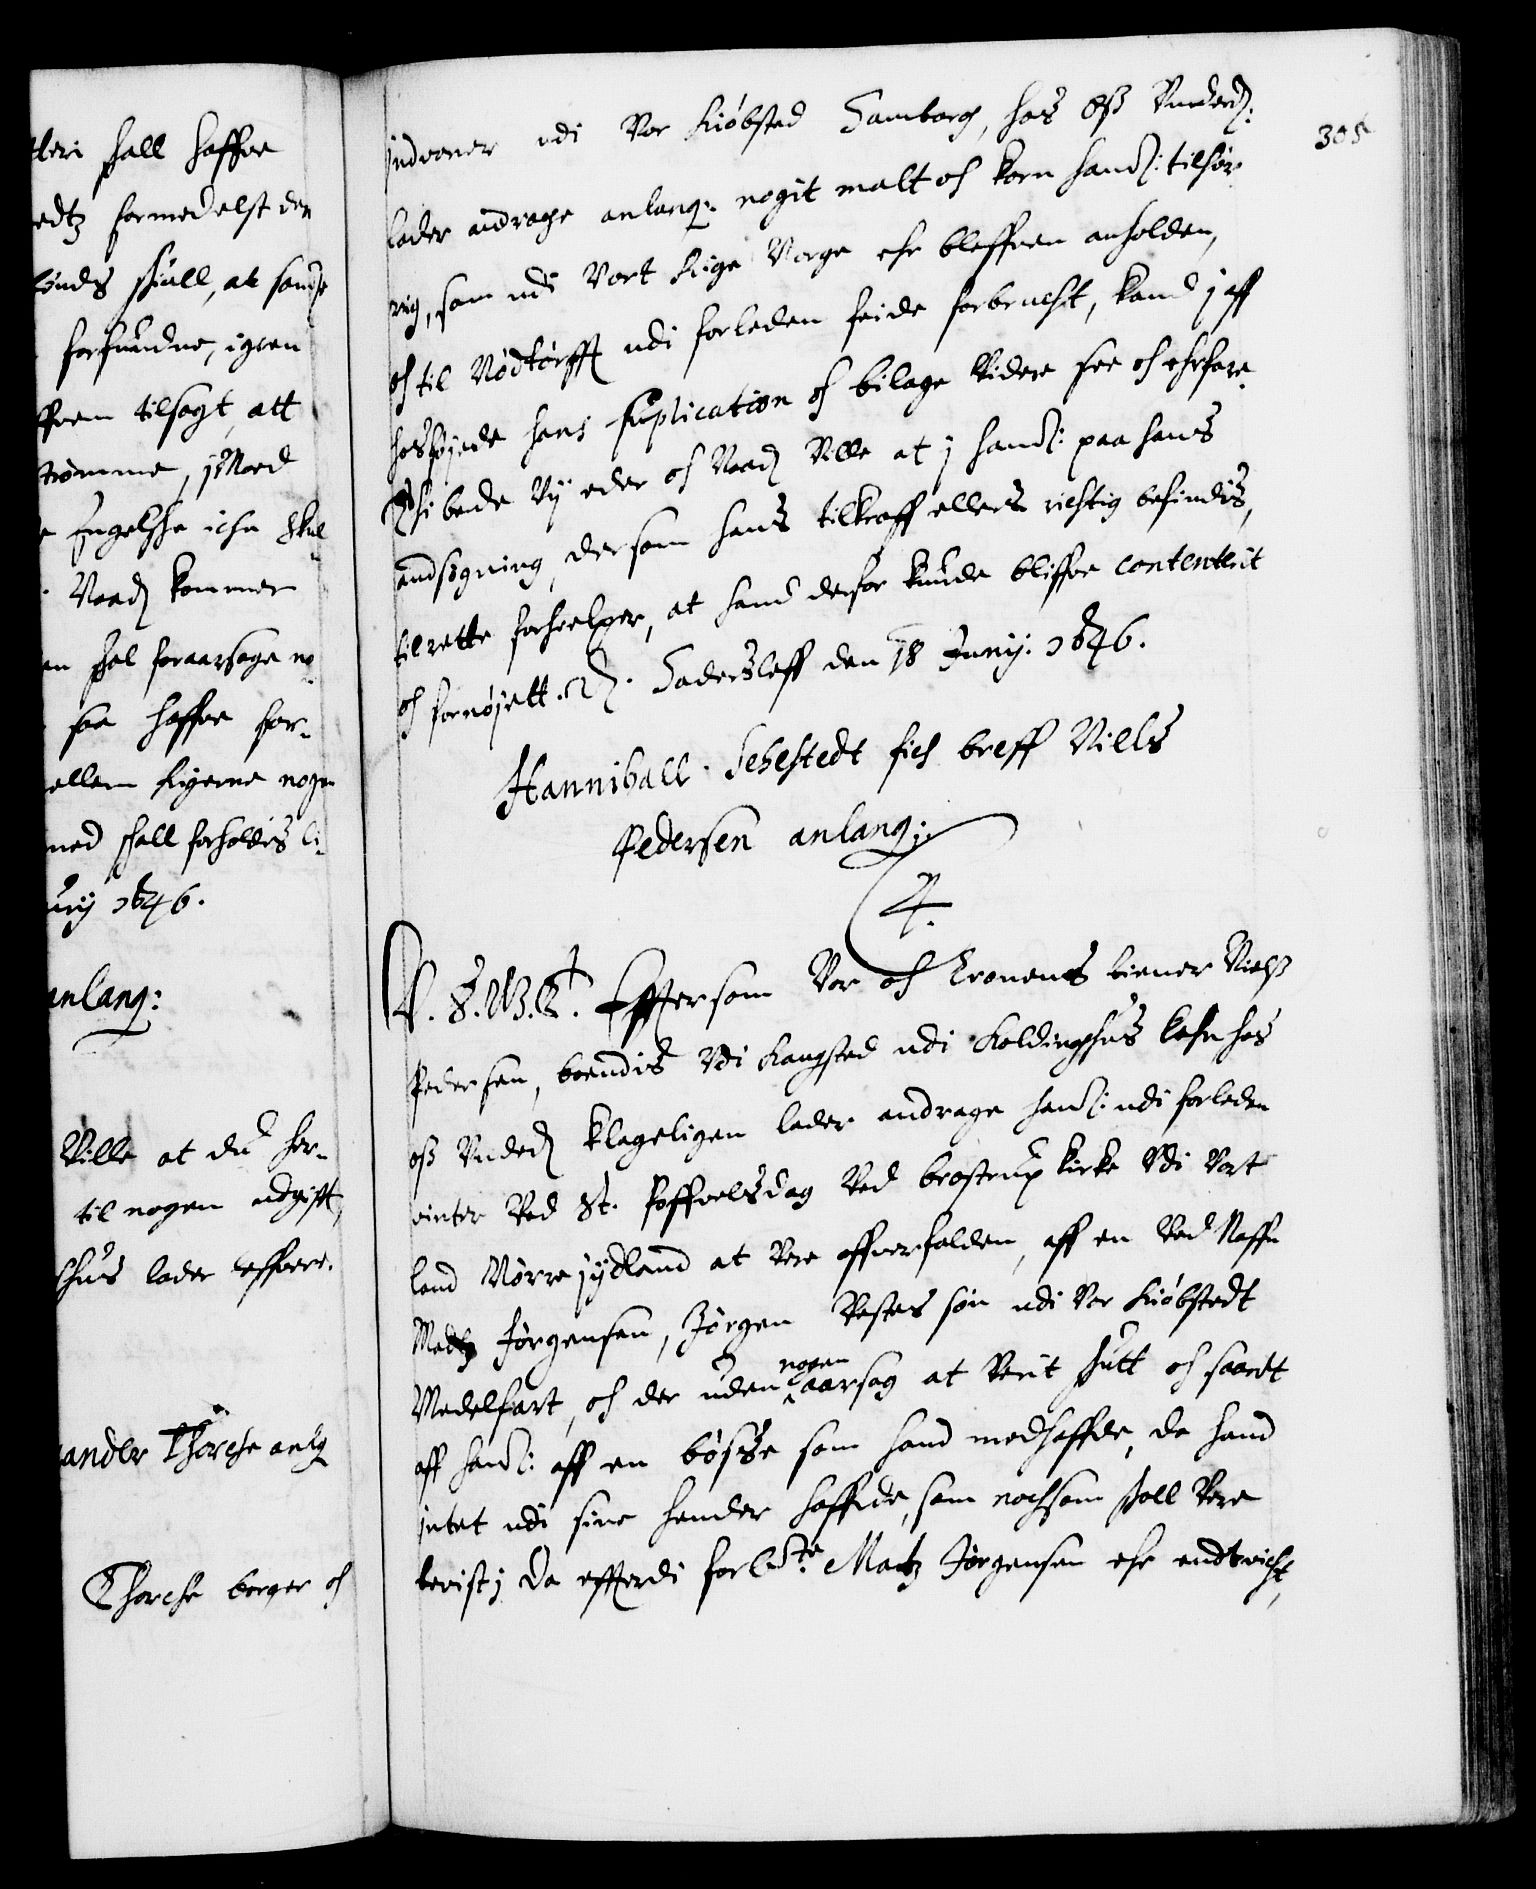 tleri skall haffve
edtz formedelst den
lønds skiull, at samme
forfundne, igien
ffven tilsagt, att
trømme, j Noed
e Engelske icke skul
Naadj kommer
en skal foraarsage no
saa haffve for-
ellem Rigerne nogen
med skall forholdis li-
unij 1646.
anlang:
Ville at du her-
til nogen udgifft,
huus lader effvere.
ander Thorche anlg
Thorche borger och
305
Indvoner udi Vor Kiøbsted Hamborg, hos Oss Underd:
lader andrage anlang: nogit malt och korn hand: tilhør
rig, som udi Vort Rige Norge ehr bleffven anholden,
och til Nødtørfft udi forleden feide forbrucht, kand j aff
hosføjede hans suplication och bilage Videre see och erfare.
Thi bede Vij eder och Naadj Ville at j hand: paa hans
andsøgning, dersom hans tilkraff ellers richtig befindis,
til rette forhielper, at hand derfor kunde bliffve contenterit
och fornøjett. Hadersleff den 18 Junij. 1646.
Hanniball Sehestedt fich breff Niels
Pedersen anlang:
C. 4.
V. S. G. V. Effter som Vor och Cronens tiener Nielss
Pedersen, boendis Udi Kongsted udi Koldinghus Lehn hos
oss Underdj klageligen lader andrage hand: udi forleden
vinter Ved St. Poffvelsdag Ved brostrup kirke Udi Vort
land Nørre Jydland at Vere offverfalden, aff en Ved Naffn
Madtz Jørgensen, Jørgen Restes søn udi Vor Kiøbstedt
Medelfart, och der uden nogen aarsag at Verit skutt och saardt
aff hand: aff en bøsse som hand medhaffde, da hand
intet udi sine hender haffde, som nochsom skall Vere
bevist; Da efftterdi forb:te Madtz Jørgensen ehr endtvicht,